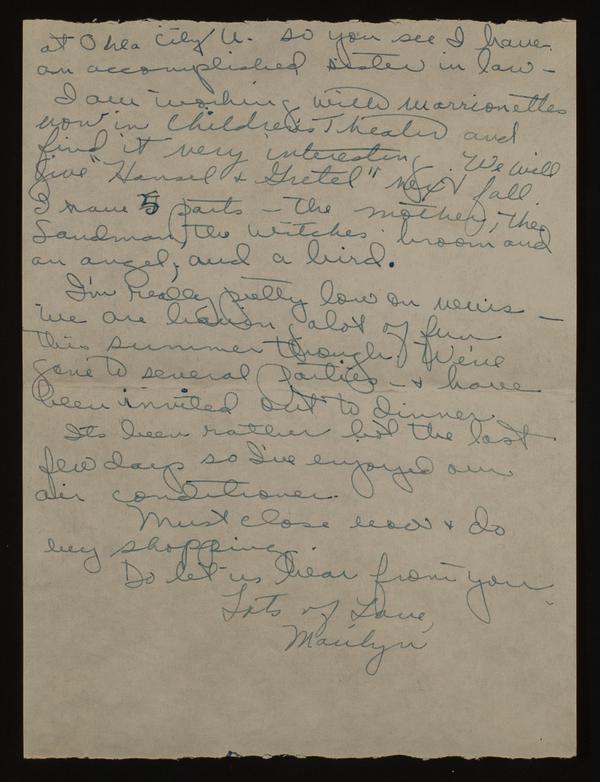 at Okla City U. So you see I have
an accomplished sister in law -
I am working with marrionettes
now in Children's Theater and
find it very interesting. We will
give "Hansel & Gretel" next fall.
I have 5 parts - the mother, the
Sandman, the witches broom and
an angel, and a bird.
I'm really pretty low on news -
We are having alot of fun
this summer though. We've
gone to several parties - & have
been invited out to dinner
Its been rather hot the last
few days so I've enjoyed our
air conditioner.
Must close now & do
my shopping.
Do let us hear from you.
Lots of Love,
Marilyn